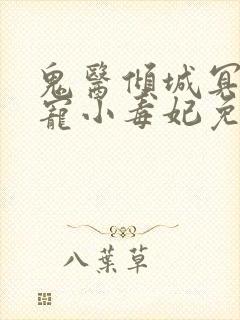 鬼醫傾城冥
寵小毒妃免
八葉草